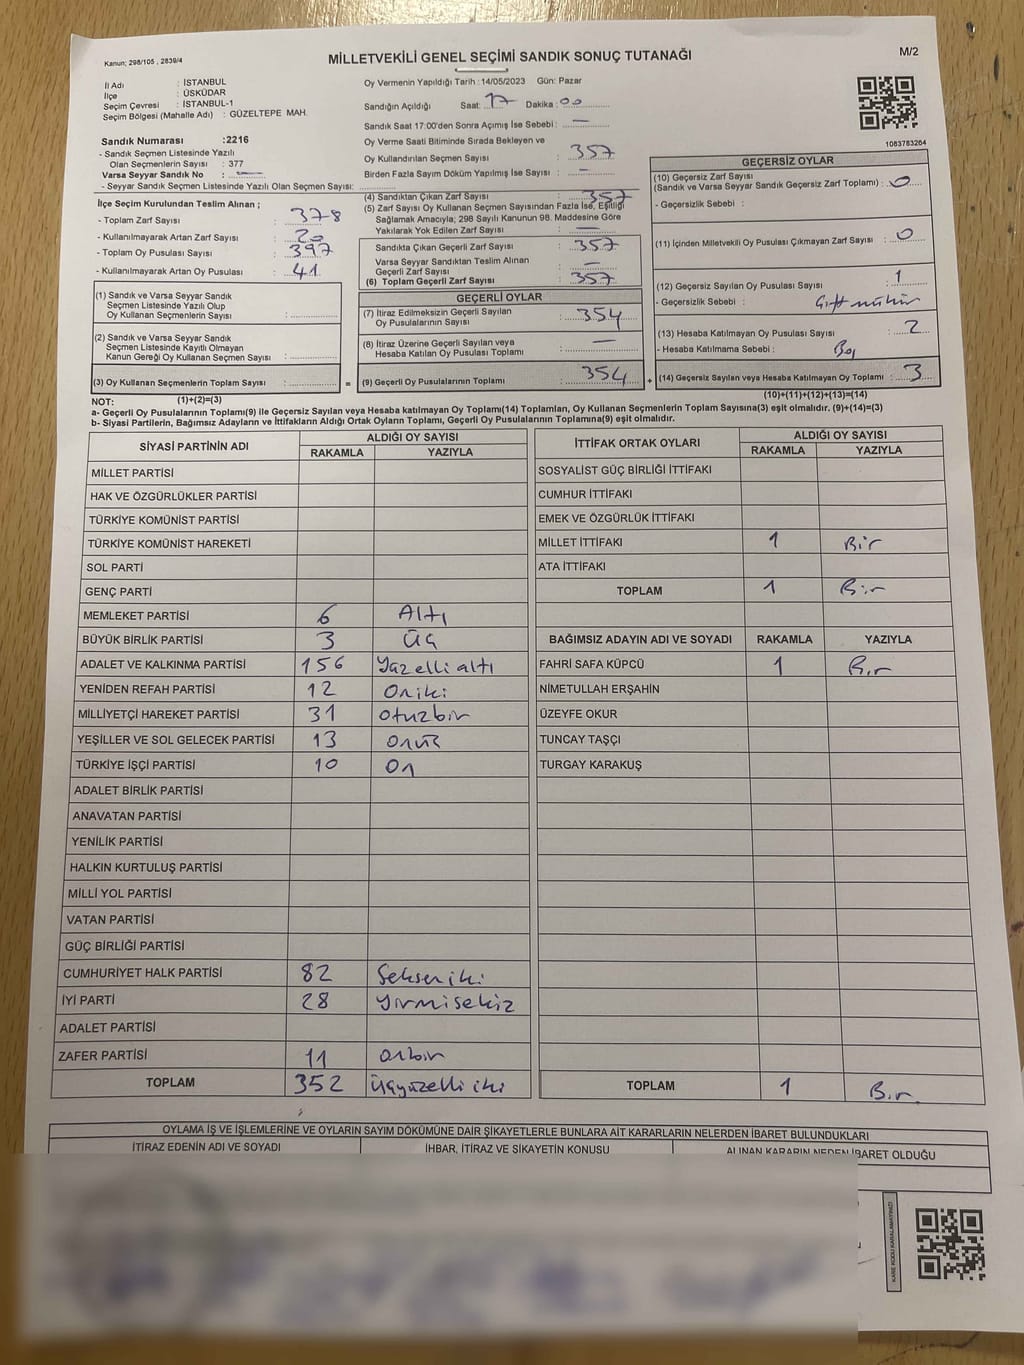 Kanun; 298/105 , 2839/4
MİLLETVEKİLİ GENEL SEÇİMİ SANDIK SONUÇ TUTANAĞI
M/2
İl Adı : İSTANBUL
İlçe : ÜSKÜDAR
Seçim Çevresi : İSTANBUL-1
Seçim Bölgesi (Mahalle Adı) : GÜZELTEPE MAH.
Sandık Numarası :2216
- Sandık Seçmen Listesinde Yazılı
Olan Seçmenlerin Sayısı : 377
Varsa Seyyar Sandık No : —
- Seyyar Sandık Seçmen Listesinde Yazılı Olan Seçmen Sayısı:
Oy Vermenin Yapıldığı Tarih : 14/05/2023 Gün: Pazar
Sandığın Açıldığı Saat: 17 Dakika : 00
Sandık Saat 17:00'den Sonra Açımış İse Sebebi : —
Oy Verme Saati Bitiminde Sırada Bekleyen ve
Oy Kullandırılan Seçmen Sayısı : 357
Birden Fazla Sayım Döküm Yapılmış İse Sayısı : —
1083783264
İlçe Seçim Kurulundan Teslim Alınan ;
- Toplam Zarf Sayısı : 378
- Kullanılmayarak Artan Zarf Sayısı : 20
- Toplam Oy Pusulası : 397
- Kullanılmayarak Artan Oy Pusulası : 41
(1) Sandık ve Varsa Seyyar Sandık
Seçmen Listesinde Yazılı Olup
Oy Kullanan Seçmenlerin Sayısı :
(2) Sandık ve Varsa Seyyar Sandık
Seçmen Listesinde Kayıtlı Olmayan
Kanun Gereği Oy Kullanan Seçmen Sayısı :
(3) Oy Kullanan Seçmenlerin Toplam Sayısı : =
(4) Sandıktan Çıkan Zarf Sayısı : 357
(5) Zarf Sayısı Oy Kullanan Seçmen Sayısından Fazla İse, Eşitliği
Sağlamak Amacıyla; 298 Sayılı Kanunun 98. Maddesine Göre
Yakılarak Yok Edilen Zarf Sayısı : —
Sandıkta Çıkan Geçerli Zarf Sayısı : 357
Varsa Seyyar Sandıktan Teslim Alınan
Geçerli Zarf Sayısı : —
(6) Toplam Geçerli Zarf Sayısı : 357
GEÇERLİ OYLAR
(7) İtiraz Edilmeksizin Geçerli Sayılan
Oy Pusulalarının Sayısı : 354
(8) İtiraz Üzerine Geçerli Sayılan veya
Hesaba Katılan Oy Pusulası Toplamı : —
(9) Geçerli Oy Pusulalarının Toplamı : 354 +
GEÇERSİZ OYLAR
(10) Geçersiz Zarf Sayısı
(Sandık ve Varsa Seyyar Sandık Geçersiz Zarf Toplamı) : 0
- Geçersizlik Sebebi :
(11) İçinden Milletvekili Oy Pusulası Çıkmayan Zarf Sayısı : 0
(12) Geçersiz Sayılan Oy Pusulası Sayısı : 1
- Geçersizlik Sebebi : Çift mühür
(13) Hesaba Katılmayan Oy Pusulası Sayısı : 2
- Hesaba Katılmama Sebebi : Boş
(14) Geçersiz Sayılan veya Hesaba Katılmayan Oy Toplamı : 3
(10)+(11)+(12)+(13)=(14)
NOT: (1)+(2)=(3)
a- Geçerli Oy Pusulalarının Toplamı(9) ile Geçersiz Sayılan veya Hesaba katılmayan Oy Toplamı(14) Toplamları, Oy Kullanan Seçmenlerin Toplam Sayısına(3) eşit olmalıdır. (9)+(14)=(3)
b- Siyasi Partilerin, Bağımsız Adayların ve İttifakların Aldığı Ortak Oyların Toplamı, Geçerli Oy Pusulalarının Toplamına(9) eşit olmalıdır.
SİYASİ PARTİNİN ADI ALDIĞI OY SAYISI
RAKAMLA YAZIYLA
MİLLET PARTİSİ
HAK VE ÖZGÜRLÜKLER PARTİSİ
TÜRKİYE KOMÜNİST PARTİSİ
TÜRKİYE KOMÜNİST HAREKETİ
SOL PARTİ
GENÇ PARTİ
MEMLEKET PARTİSİ 6 Altı
BÜYÜK BİRLİK PARTİSİ 3 Üç
ADALET VE KALKINMA PARTİSİ 156 Yüzelli altı
YENİDEN REFAH PARTİSİ 12 Oniki
MİLLİYETÇİ HAREKET PARTİSİ 31 Otuzbir
YEŞİLLER VE SOL GELECEK PARTİSİ 13 Onüç
TÜRKİYE İŞÇİ PARTİSİ 10 On
ADALET BİRLİK PARTİSİ
ANAVATAN PARTİSİ
YENİLİK PARTİSİ
HALKIN KURTULUŞ PARTİSİ
MİLLİ YOL PARTİSİ
VATAN PARTİSİ
GÜÇ BİRLİĞİ PARTİSİ
CUMHURİYET HALK PARTİSİ 82 Seksen iki
İYİ PARTİ 28 Yirmisekiz
ADALET PARTİSİ
ZAFER PARTİSİ 11 Onbir
TOPLAM 352 Üçyüzelli iki
İTTİFAK ORTAK OYLARI ALDIĞI OY SAYISI
RAKAMLA YAZIYLA
SOSYALİST GÜÇ BİRLİĞİ İTTİFAKI
CUMHUR İTTİFAKI
EMEK VE ÖZGÜRLÜK İTTİFAKI
MİLLET İTTİFAKI 1 Bir
ATA İTTİFAKI
TOPLAM 1 Bir
BAĞIMSIZ ADAYIN ADI VE SOYADI RAKAMLA YAZIYLA
FAHRİ SAFA KÜPCÜ 1 Bir
NİMETULLAH ERŞAHİN
ÜZEYFE OKUR
TUNCAY TAŞÇI
TURGAY KARAKUŞ
TOPLAM 1 Bir
OYLAMA İŞ VE İŞLEMLERİNE VE OYLARIN SAYIM DÖKÜMÜNE DAİR ŞİKAYETLERLE BUNLARA AİT KARARLARIN NELERDEN İBARET BULUNDUKLARI
İTİRAZ EDENİN ADI VE SOYADI İHBAR, İTİRAZ VE ŞİKAYETİN KONUSU ALINAN KARARIN NEDEN İBARET OLDUĞU
KARE KODU KARALAMAYINIZ!